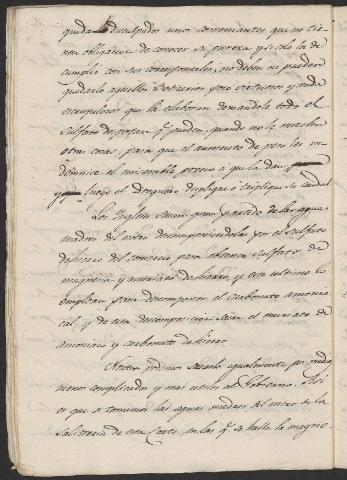 quedan disculpados unos comerciantes que no tie-
nen obligacion de conocer su pureza y si solo la de
cumplir con sus corresponsales, no deben ni pueden
quedarlo aquellos Boticarios poco virtuosos y nada
escrupulosos que lo elaboran dexandole todo el
sulfato de potasa q.e pueden, quando no le mezclen
otras cosas, para que el aumento de peso les in-
demnice el miserable precio á que la dan,
luego el Droguero duplique ó triplique su caudal
Los Ingleses sacan gran partido de las aguas
madres del nitro decomponiendolas por el sulfato
de hierro del comercio para obtener sulfato de
magnesia y muriato de hierro, y este ultimo lo
emplean para descomponer el carbonato amonia-
cal, y de esta descomposicion sacan el muriato de
amoniaco y carbonato de hierro.
Nosotros podemos sacarlo igualmente por medios
menos complicados y mas utiles al Gobierno. Asi
es que si tomamos las aguas madres del nitro de la
Salitreria de esta Corte, en las q.e se halla la magne-